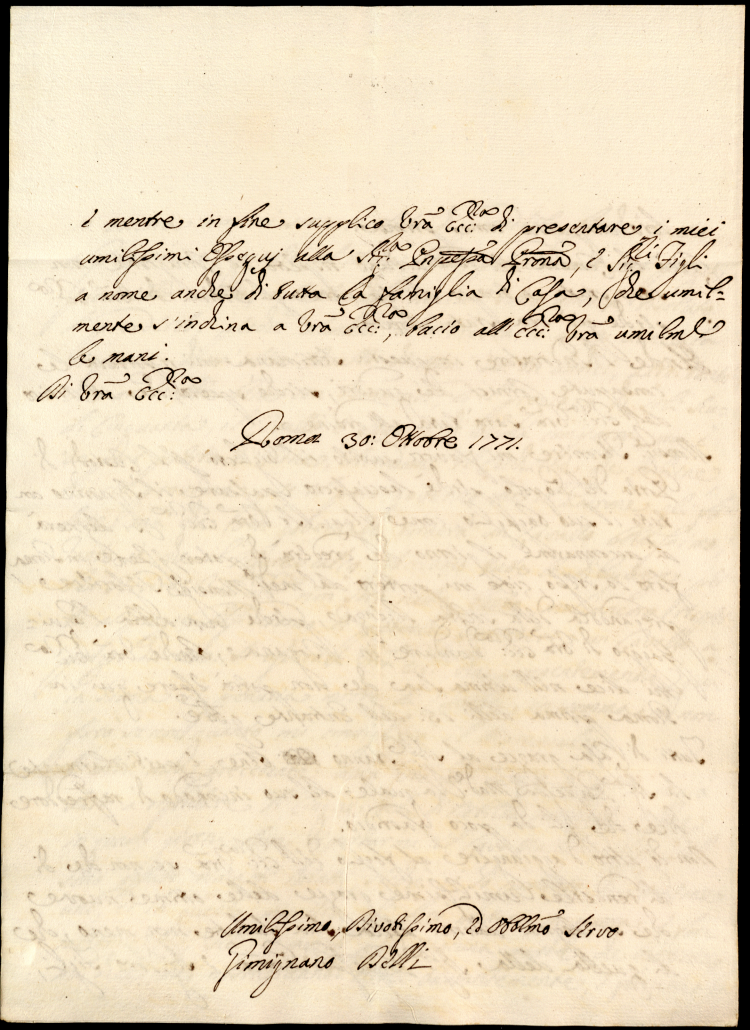 e mentre in fine supplico Vrã Ecc:Rma di presentare i miei
umilissimi Ossequj alla Sig.ra Enpessa Prona, e Sig.li Figli
a nome anche di tutta la famiglia di Casa, che umil=
mente s'inchina a Vrã Ecc:Rma, bacio all' Ecc:Rma Vrã umilmte
le mani.
Di Vrã Ecc:Rma
Roma 30: Ottobre 1771.
Umilissimo, Divotissimo, ed Obblmo Servo
Gimignano Belli